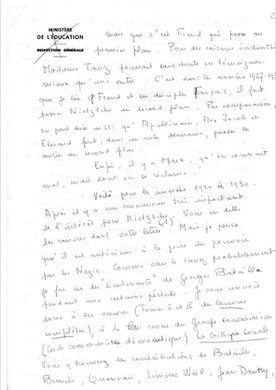 MINISTÈRE
DE L'ÉDUCATION
INSPECTION GÉNÉRALE
2
mais que c'est Freud qui passe au
premier plan. Pour des raisons évidentes
Madame Lacan pourrait sans doute en témoigner
mieux qu'une autre. C'est dans les années 1927-193
que Freud et ses disciples français, il fait
passer Nietzsche au second plan. Par comparaison
on peut dire aussi qu'Apollinaire, Max Jacob et
Eluard font, dans un autre domaine, passer les
autres au second plan
Enfin, il y a Marx, qu'on connaît
mal, mais dont on se réclame.
Voilà pour les années 1920 à 1930.
Après il y a un renouveau très important
de l'intérêt pour Nietzsche. Vous en dites
les raisons dans votre lettre. Mais je pense
qu'il est antérieur à la prise du pouvoir
par les Nazis. Comme vous le savez probablement
je fus un des "confidents" de Georges Bataille
pendant une certaine période. Je vous renvoie
donc à ses œuvres (Tomes I et II des œuvres
complètes), à la revue du Groupe
(communisme démocratique) La Critique Sociale
Vous y trouverez des contributions de Bataille,
Bernier, Queneau, Simone Weil, Jean Dautry